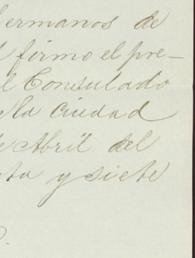 Hermanos de
firmo el pre-
l Consulado
la Ciudad
Abril del
ta y siete